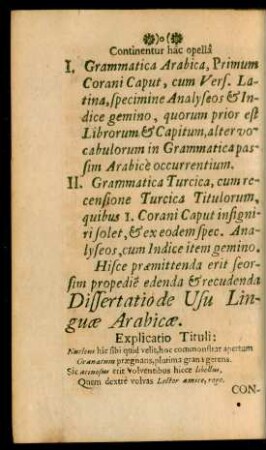 Continentur hac opellâ
I. Grammatica Arabica, Primum
Corani Caput, cum Vers. La-
tina, specimine Analyseos & In-
dice gemino, quorum prior est
Librorum & Capitum, alter vo-
cabulorum in Grammatica pas-
sim Arabicè occurrentium.
II. Grammatica Turcica, cum re-
censione Turcica Titulorum,
quibus 1. Corani Caput insigni-
ri solet, & ex eodem spec. Ana-
lyseos, cum Indice item gemino.
Hisce præmittenda erit seor-
sim propediè edenda & recudenda
Dissertatio de Usu Lin-
guæ Arabicæ.
Explicatio Tituli:
hic sibi quid velit, hoc commonstrat apertum
Granatum prægnans, plurima grana gerens.
Sic erit volventibus hicce libellus,
Quem dextrè volvas Lector amice, rogo.
CON-